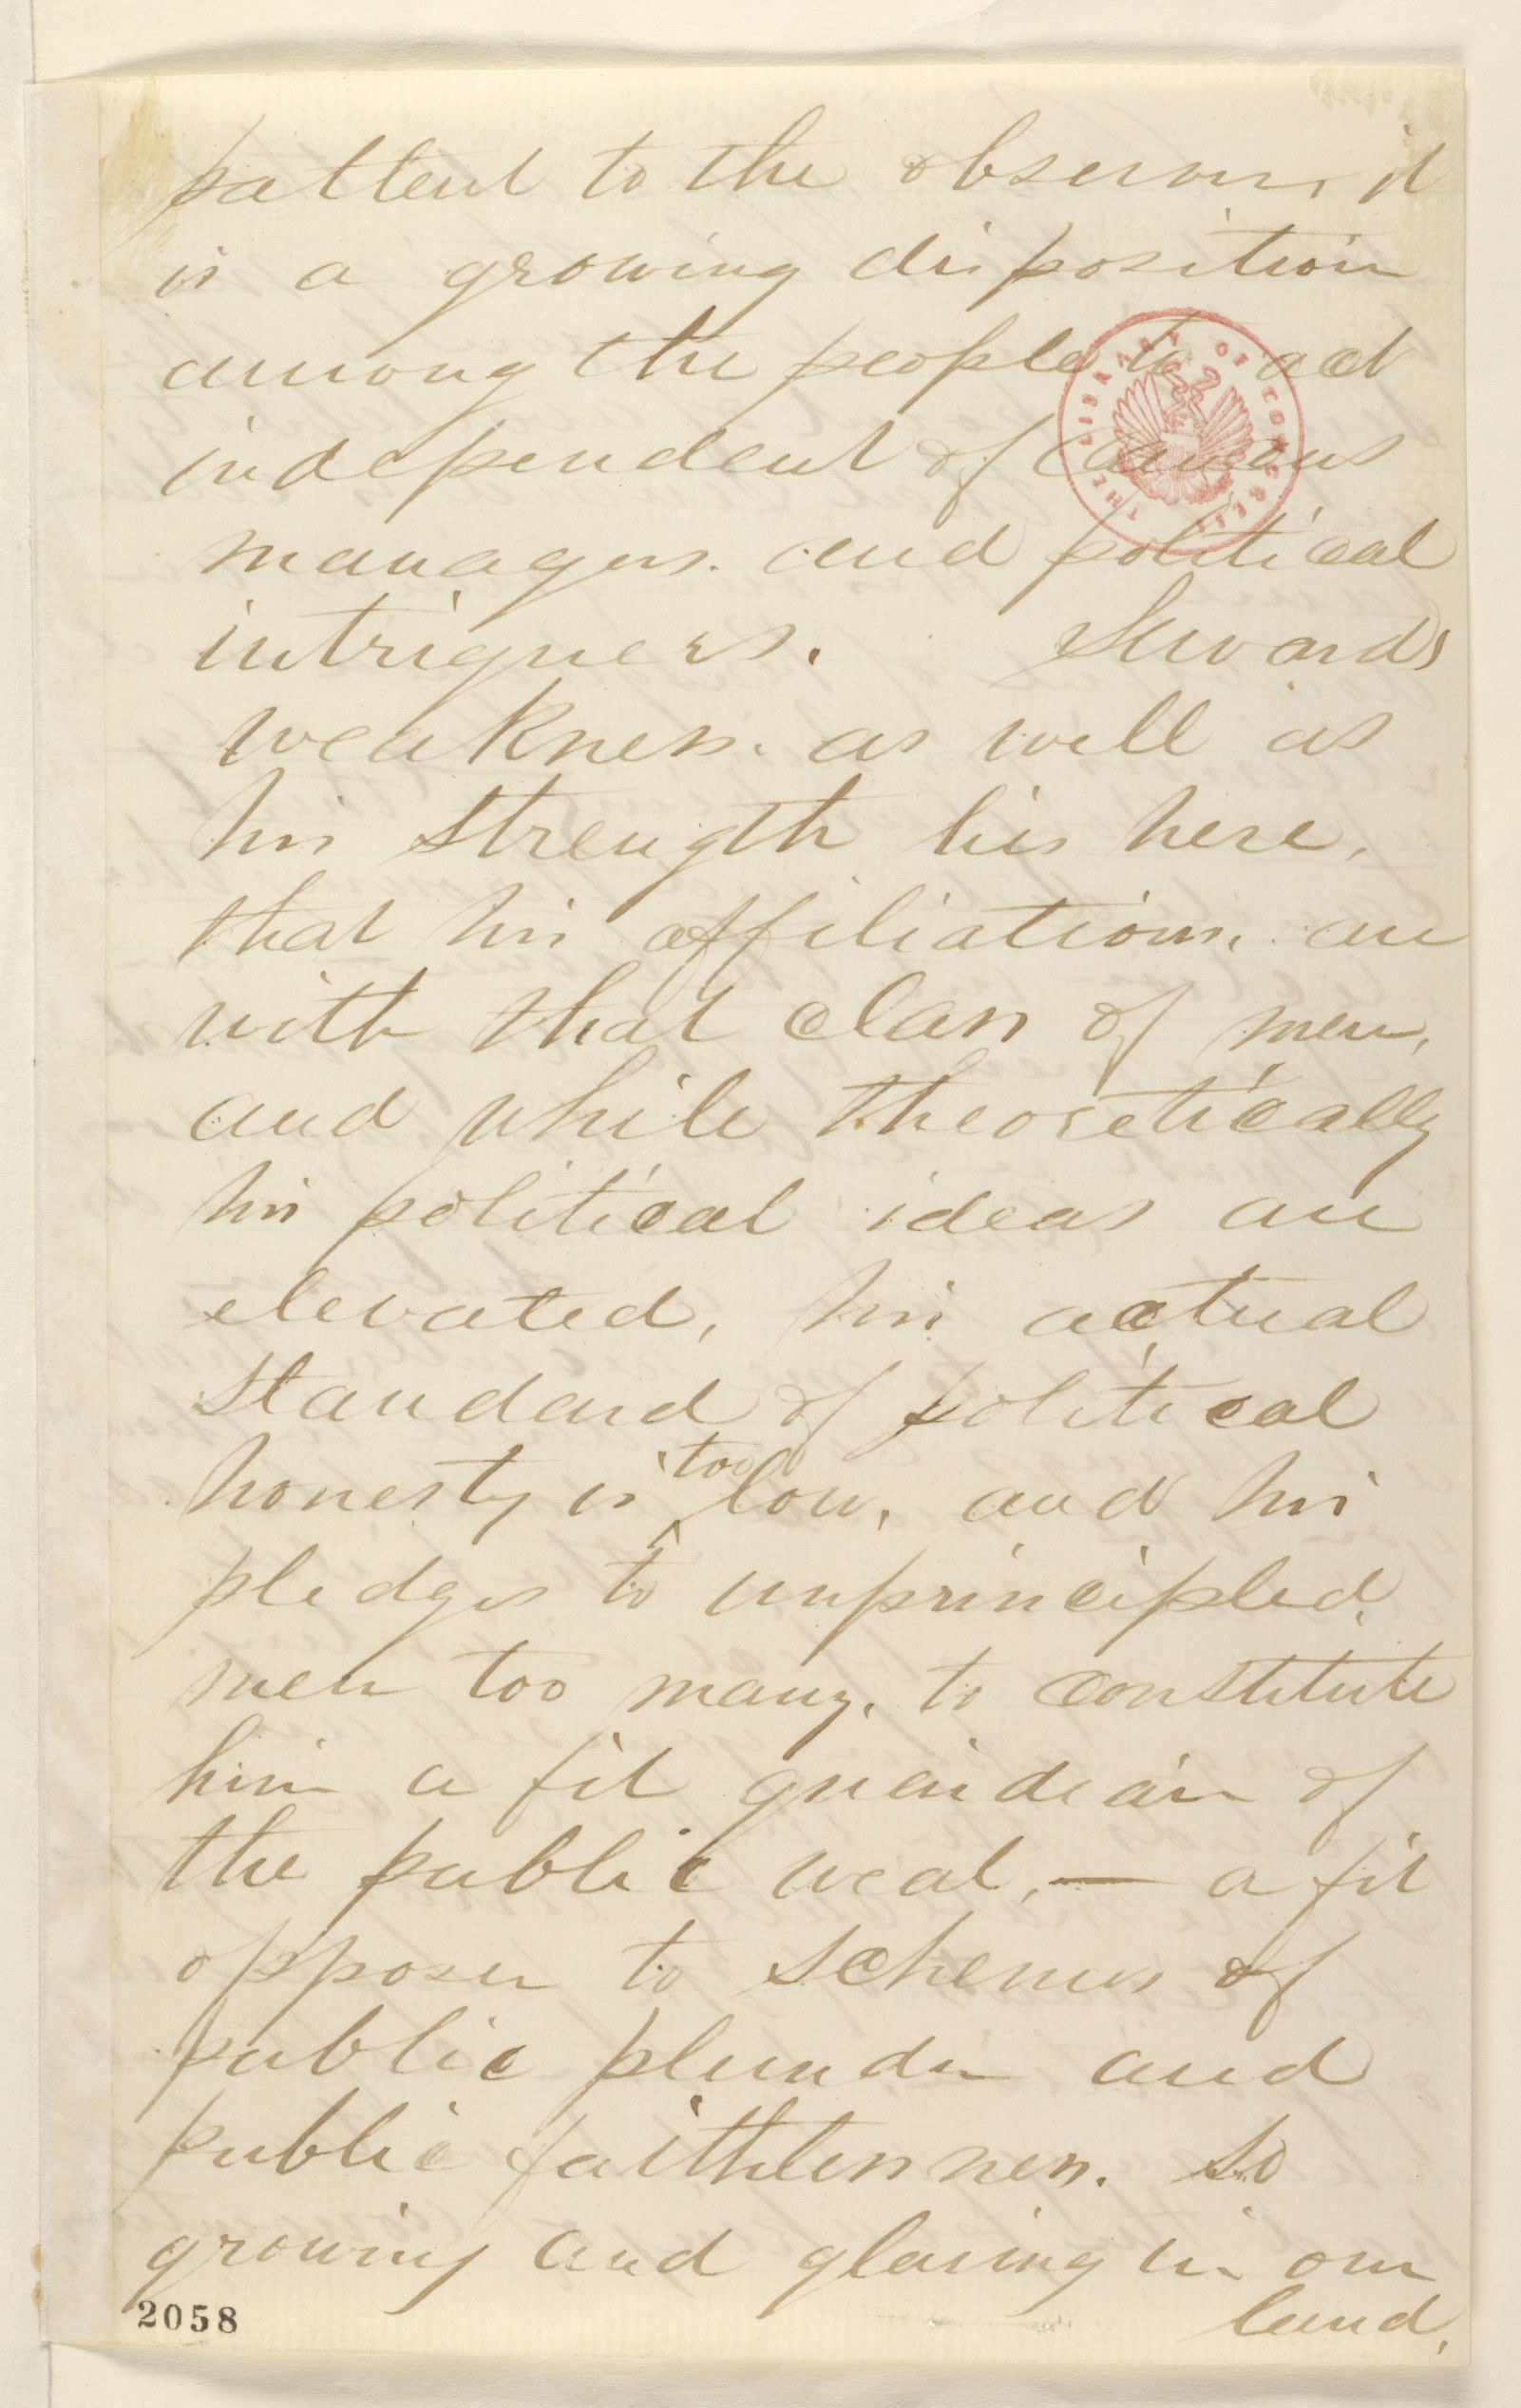 pattent to the observer, it
is a growing disposition
among the people to act
independent of caucus
managers. and political
intriguers. Sewards
weakness. as well as
his strength lies here,
that his affiliations, are
with that class of men,
and while theoretically
his political ideas are
elevated, his actual
standard of political
honesty is too low, and his
pledges to unprincipled
men too many, to constitute
him a fit guardian of
the public weal, — a fit
opposer to schemes of
public plunder and
public faithlessness. So
growing and glaring in our
land.
THE LIBRARY OF CONGRESS
2058